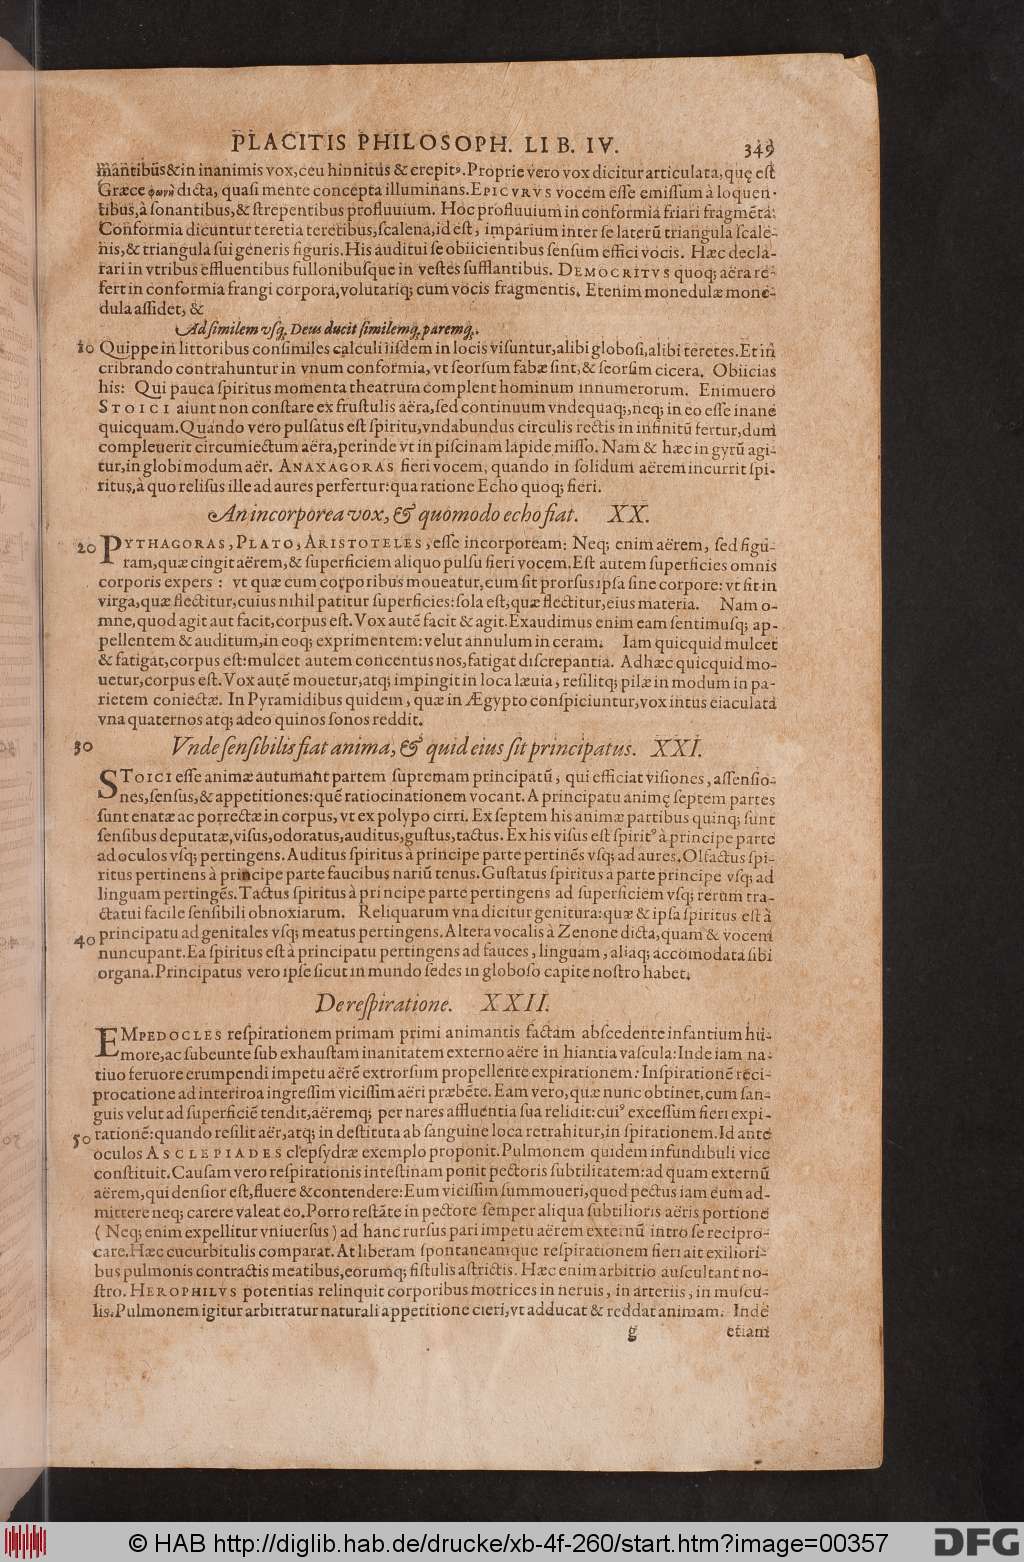 PLACITIS PHILOSOPH. LIB. IV. 349
mantibũs&in inanimis vox, ceu hinnitus & crepitꝰ. Proprie vero vox dicitur articulata, quę eſt
Græce φωνὴ dicta, quaſi mente concepta illuminans. EPICVRVS vocem eſſe emiſſum à loquen-
tibus, à ſonantibus, & ſtrepentibus profluuium. Hoc profluuium in conformia friari fragmẽta:
Conformia dicuntur teretia teretibus, ſcalena, id eſt, imparium inter ſe laterũ triangula ſcale-
nis, & triangula ſui generis figuris. His auditui ſe obiicientibus ſenſum effici vocis. Hæc decla-
rari in vtribus effluentibus fullonibuſque in veſtes ſufflantibus. DEMOCRITVS quoq; aëra re-
fert in conformia frangi corpora, volutariq; cum vocis fragmentis. Etenim monedulæ mone-
dula aſſidet, &
Ad ſimilem vſq. Deus ducit ſimilemq. paremq.
10 Quippe in littoribus conſimiles calculi iiſdem in locis viſuntur, alibi globoſi, alibi teretes. Et in
cribrando contrahuntur in vnum conformia, vt ſeorſum fabæ ſint, & ſeorſim cicera. Obiicias
his: Qui pauca ſpiritus momenta theatrum complent hominum innumerorum. Enimuero
STOICI aiunt non conſtare ex fruſtulis aëra, ſed continuum vndequaq;, neq; in eo eſſe inane
quicquam. Quando vero pulſatus eſt ſpiritu, vndabundus circulis rectis in infinitũ fertur, dum
compleuerit circumiectum aëra, perinde vt in piſcina lapide miſſo. Nam & hæc in gyrũ agi-
tur, in globi modum aër. ANAXAGORAS fieri vocem, quando in ſolidum aërem incurrit ſpi-
ritus, à quo reliſus ille ad aures perfertur: qua ratione Echo quoq; fieri.
An incorporea vox, & quomodo echo fiat. XX.
20 PYTHAGORAS, PLATO, ARISTOTELES, eſſe incorpoream: Neq; enim aërem, ſed figu-
ram, quæ cingit aërem, & ſuperficiem aliquo pulſu fieri vocem. Eſt autem ſuperficies omnis
corporis expers: vt quæ cum corporibus moueatur, cum ſit prorſus ipſa ſine corpore: vt fit in
virga, quæ flectitur, cuius nihil patitur ſuperficies: ſola eſt, quæ flectitur, eius materia. Nam o-
mne, quod agit aut facit, corpus eſt. Vox autẽ facit & agit. Exaudimus enim eam ſentimuſq; ap-
pellentem & auditum, in eoq; exprimentem: velut annulum in ceram. Iam quicquid mulcet
& fatigat, corpus eſt: mulcet autem concentus nos, fatigat diſcrepantia. Adhæc quicquid mo-
uetur, corpus eſt. Vox autẽ mouetur, atq; impingit in loca læuia, reſilitq; pilæ in modum in pa-
rietem coniectæ. In Pyramidibus quidem, quæ in Ægypto conſpiciuntur, vox intus eiaculata
vna quaternos atq; adeo quinos ſonos reddit.
30 Vnde ſenſibilis fiat anima, & quid eius ſit principatus. XXI.
STOICI eſſe animæ autumant partem ſupremam principatũ, qui efficiat viſiones, aſſenſio-
nes, ſenſus, & appetitiones: quẽ ratiocinationem vocant. A principatu animę ſeptem partes
ſunt enatæ ac porrectæ in corpus, vt ex polypo cirri. Ex ſeptem his animæ partibus quinq; ſunt
ſenſibus deputatæ, viſus, odoratus, auditus, guſtus, tactus. Ex his viſus eſt ſpiritꝰ à principe parte
ad oculos vſq; pertingens. Auditus ſpiritus à principe parte pertinẽs vſq; ad aures. Olfactus ſpi-
ritus pertinens à principe parte faucibus nariũ tenus. Guſtatus ſpiritus a parte principe vſq; ad
linguam pertingẽs. Tactus ſpiritus à principe parte pertingens ad ſuperficiem vſq; rerum tra-
ctatui facile ſenſibili obnoxiarum. Reliquarum vna dicitur genitura: quæ & ipſa ſpiritus eſt à
40 principatu ad genitales vſq; meatus pertingens. Altera vocalis à Zenone dicta, quam & vocem
nuncupant. Ea ſpiritus eſt à principatu pertingens ad fauces, linguam, aliaq; accomodata ſibi
organa. Principatus vero ipſe ſicut in mundo ſedes in globoſo capite noſtro habet.
De reſpiratione. XXII.
EMPEDOCLES reſpirationem primam primi animantis factam abſcedente infantium hu-
more, ac ſubeunte ſub exhauſtam inanitatem externo aëre in hiantia vaſcula: Inde iam na-
tiuo feruore erumpendi impetu aërẽ extrorſum propellente expirationem: Inſpirationẽ reci-
procatione ad interiora ingreſſim viciſſim aëri præbẽte. Eam vero, quæ nunc obtinet, cum ſan-
guis velut ad ſuperficiẽ tendit, aëremq; per nares affluentia ſua relidit: cuiꝰ exceſſum fieri expi-
50 rationẽ: quando reſilit aër, atq; in deſtituta ab ſanguine loca retrahitur, in ſpirationem. Id ante
oculos ASCLEPIADES clepſydræ exemplo proponit. Pulmonem quidem infundibuli vice
conſtituit. Cauſam vero reſpirationis inteſtinam ponit pectoris ſubtilitatem: ad quam externũ
aërem, qui denſior eſt, fluere & contendere: Eum viciſſim ſummoueri, quod pectus iam eum ad-
mittere neq; carere valeat eo. Porro reſtãte in pectore ſemper aliqua ſubtilioris aëris portione
(Neq; enim expellitur vniuerſus) ad hanc rurſus pari impetu aërem externũ intro ſe recipro-
care. Hæc cucurbitulis comparat. At liberam ſpontaneamque reſpirationem fieri ait exiliori-
bus pulmonis contractis meatibus, eorumq; fiſtulis aſtrictis. Hæc enim arbitrio auſcultant no-
ſtro. HEROPHILVS potentias relinquit corporibus motrices in neruis, in arteriis, in muſcu-
lis. Pulmonem igitur arbitratur naturali appetitione cieri, vt adducat & reddat animam. Inde
g etiam
© HAB http://diglib.hab.de/drucke/xb-4f-260/start.htm?image=00357
DFG